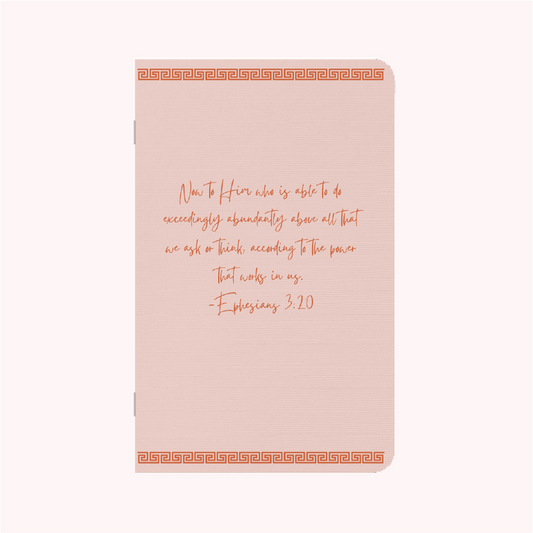 Now to Him who is able to do
exceedingly abundantly above all that
we ask or think, according to the power
that works in us.
-Ephesians 3:20